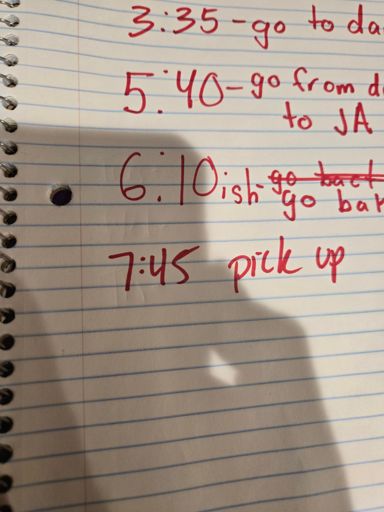 3:35-go to da
5:40-go from d
to JA
6:10ish-go back
go bak
7:45 pick up